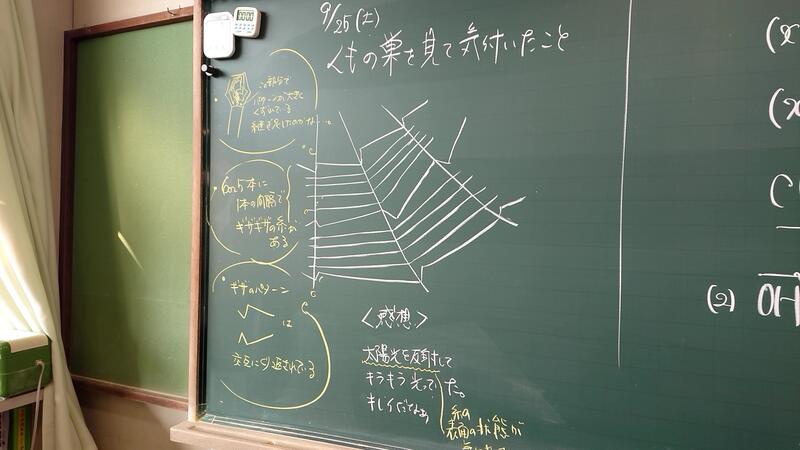 9/25(土)
くもの巣を見て気付いたこと
この部分で
パターンが大きく
くずれている
6or5本に
1本の間隔で
ギザギザの糸が
ある
ギザのパターン
は
交互にくり返されている
<感想>
太陽光を反射して
キラキラ光ってた。
キレイだなぁ
糸の
表面の状態が
(2)